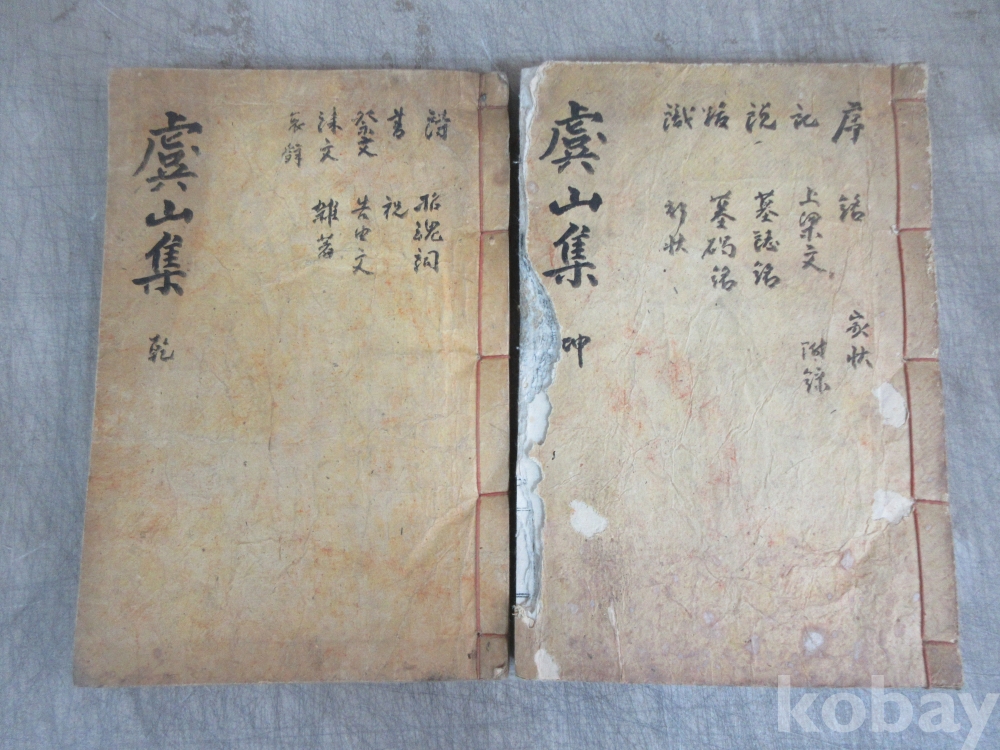 虞山集 乾
詩 招魂詞
書 祝
祭文 告由文
誄文 雜著
哀辭
虞山集 坤
序 銘 家狀
記 上梁文 附錄
說 墓誌銘
跋 墓碣銘
識 行狀
kobay